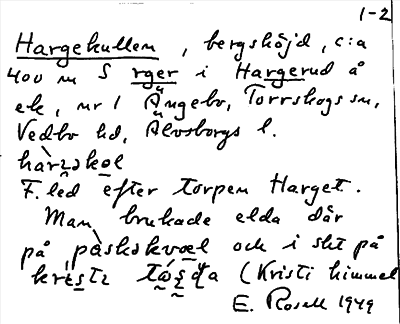 1-2
Hargekullen, bergshöjd, c:a
400 m S rger i Hargerud å
ek, nr 1 Ängebo, Torrskogs sn,
Vedbo hd, Älvsborgs l.
F.led efter torpen Harget.
Man brukade elda där
på påskskvæl och i slt på
(Kristi himmel
E. Rosell 1949